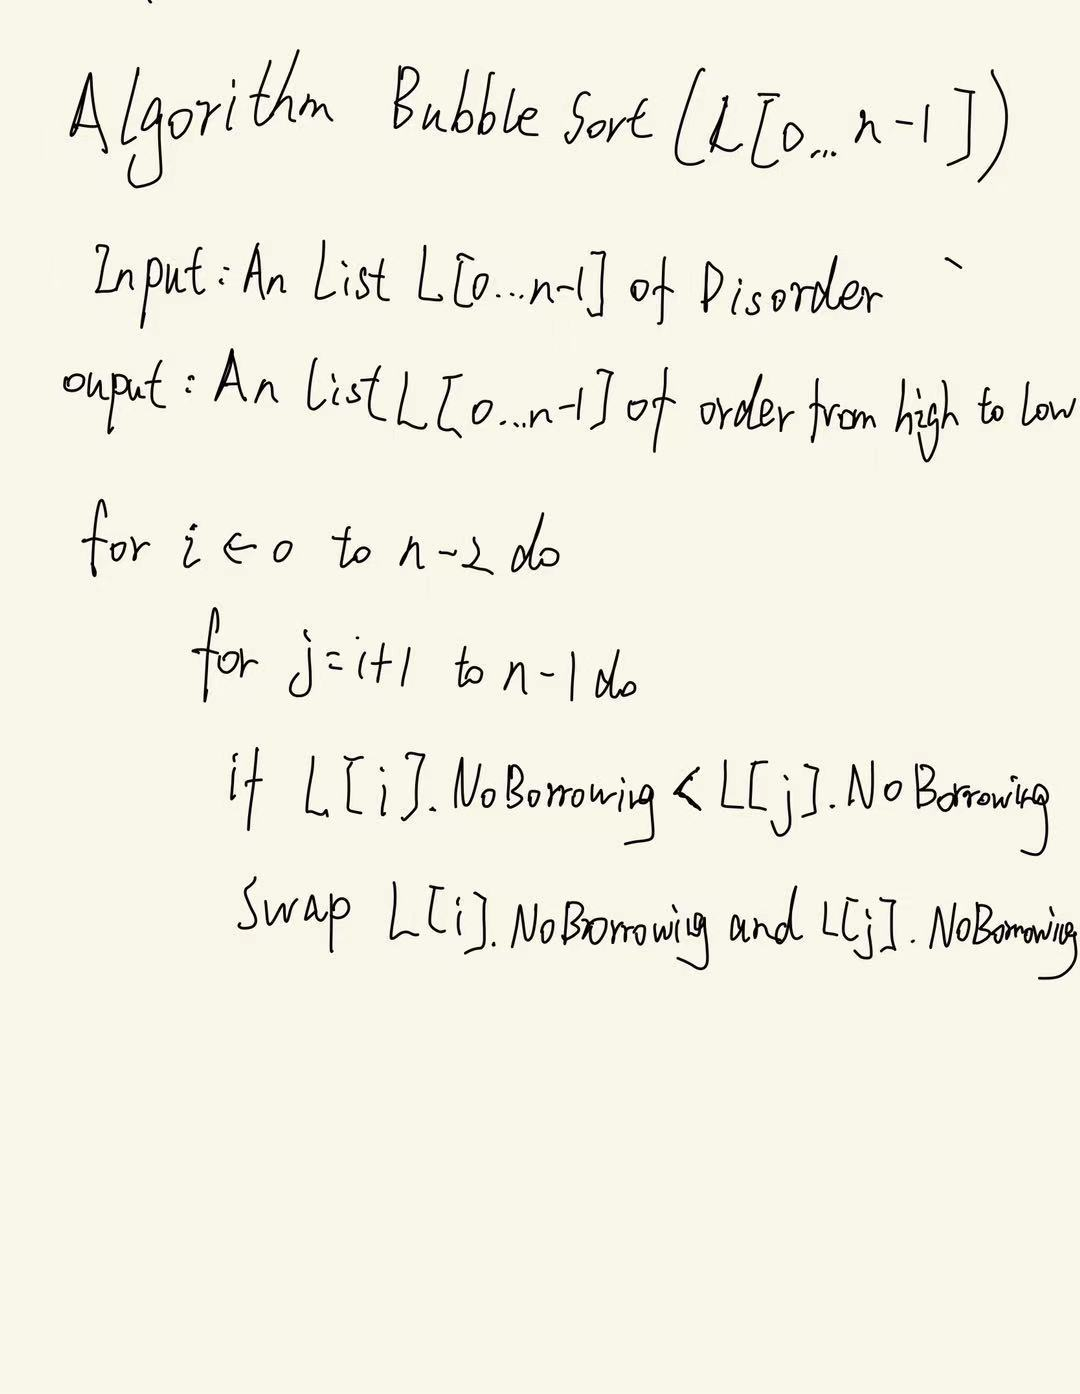 Algorithm Bubble Sort (L[0... n-1])
Input: An List L[0...n-1] of Disorder
ouput: An List L[0...n-1] of order from high to low
for i ← 0 to n-2 do
for j=i+1 to n-1 do
if L[i]. NoBorrowing < L[j]. NoBorrowing
Swap L[i]. NoBorrowing and L[j]. NoBorrowing